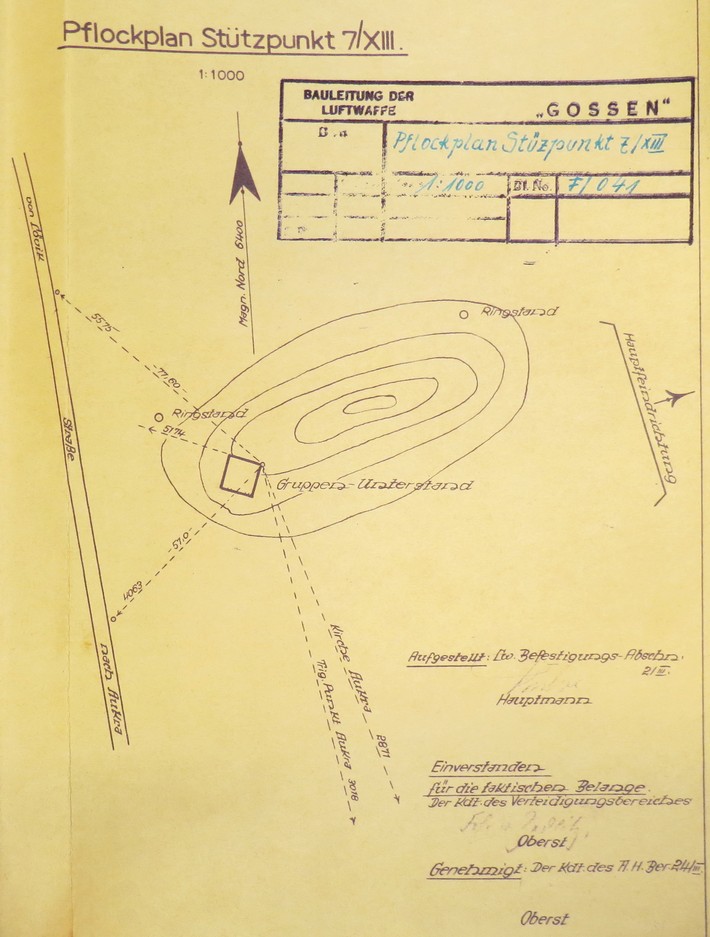 Pflockplan Stützpunkt 7/XIII.
1:1000
BAULEITUNG DER
LUFTWAFFE
„GOSSEN"
Pflockplan Stüzpunkt 7/XIII
1:1000
Bl. No.
F/041
Magn. Nord 6400
von
5575
77.60
Ringstand
Ringstand
5174
Straße
Gruppen-Unterstand
Hauptfeindrichtung
57.0
4063
nach Aukra
Kirche Aukra 2871
Trig. Punkt Aukra 3018
Aufgestellt: Lw. Befestigungs-Abschn.
2/III.
Hauptmann
Einverstanden
für die taktischen Belange.
Der Kdt. des Verteidigungsbereiches
Oberst
Genehmigt: Der Kdt. des A.H. Ber. 24/III.
Oberst